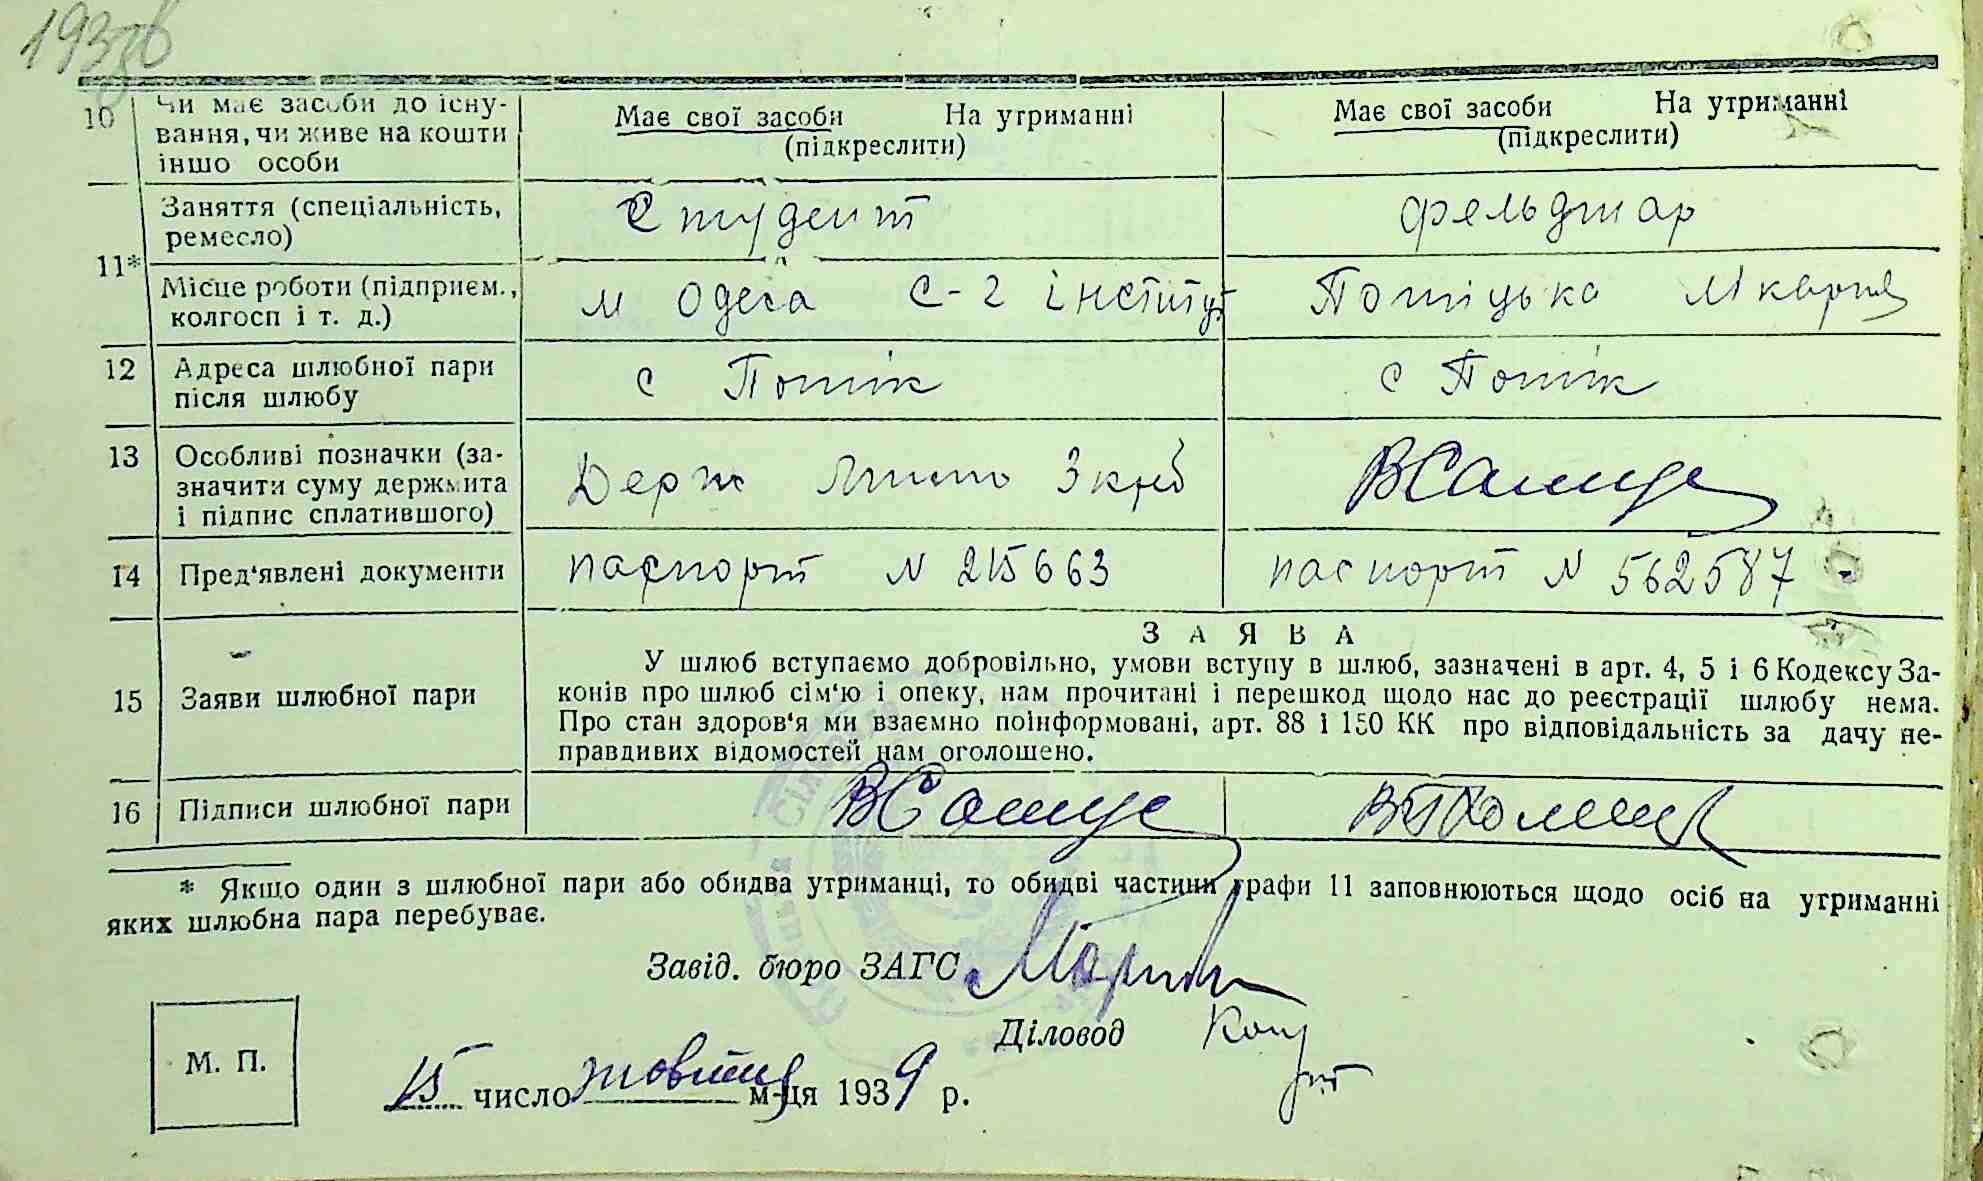 193
10 Чи має засоби до існу- Має свої засоби На утриманні Має свої засоби На утриманні
вання, чи живе на кошти (підкреслити) (підкреслити)
іншо особи
11* Заняття (спеціальність, Студент фельдшар
ремесло)
Місце роботи (підприєм., м Одеса С-2 інститут Потіцька лікарня
колгосп і т. д.)
12 Адреса шлюбної пари с Потік с Потік
після шлюбу
13 Особливі позначки (за- Держ мито 3 крб
значити суму держмита
і підпис сплатившого)
14 Пред'явлені документи паспорт N 215663 паспорт N 562587
З А Я В А
15 Заяви шлюбної пари У шлюб вступаємо добровільно, умови вступу в шлюб, зазначені в арт. 4, 5 і 6 Кодексу За-
конів про шлюб сім'ю і опеку, нам прочитані і перешкод щодо нас до реєстрації шлюбу нема.
Про стан здоров'я ми взаємно поінформовані, арт. 88 і 150 КК про відповідальність за дачу не-
правдивих відомостей нам оголошено.
16 Підписи шлюбної пари
* Якщо один з шлюбної пари або обидва утриманці, то обидві частини графи 11 заповнюються щодо осіб на утриманні
яких шлюбна пара перебуває.
Завід. бюро ЗАГС
Діловод
М. П.
15 число жовтня м-ця 1939 р.